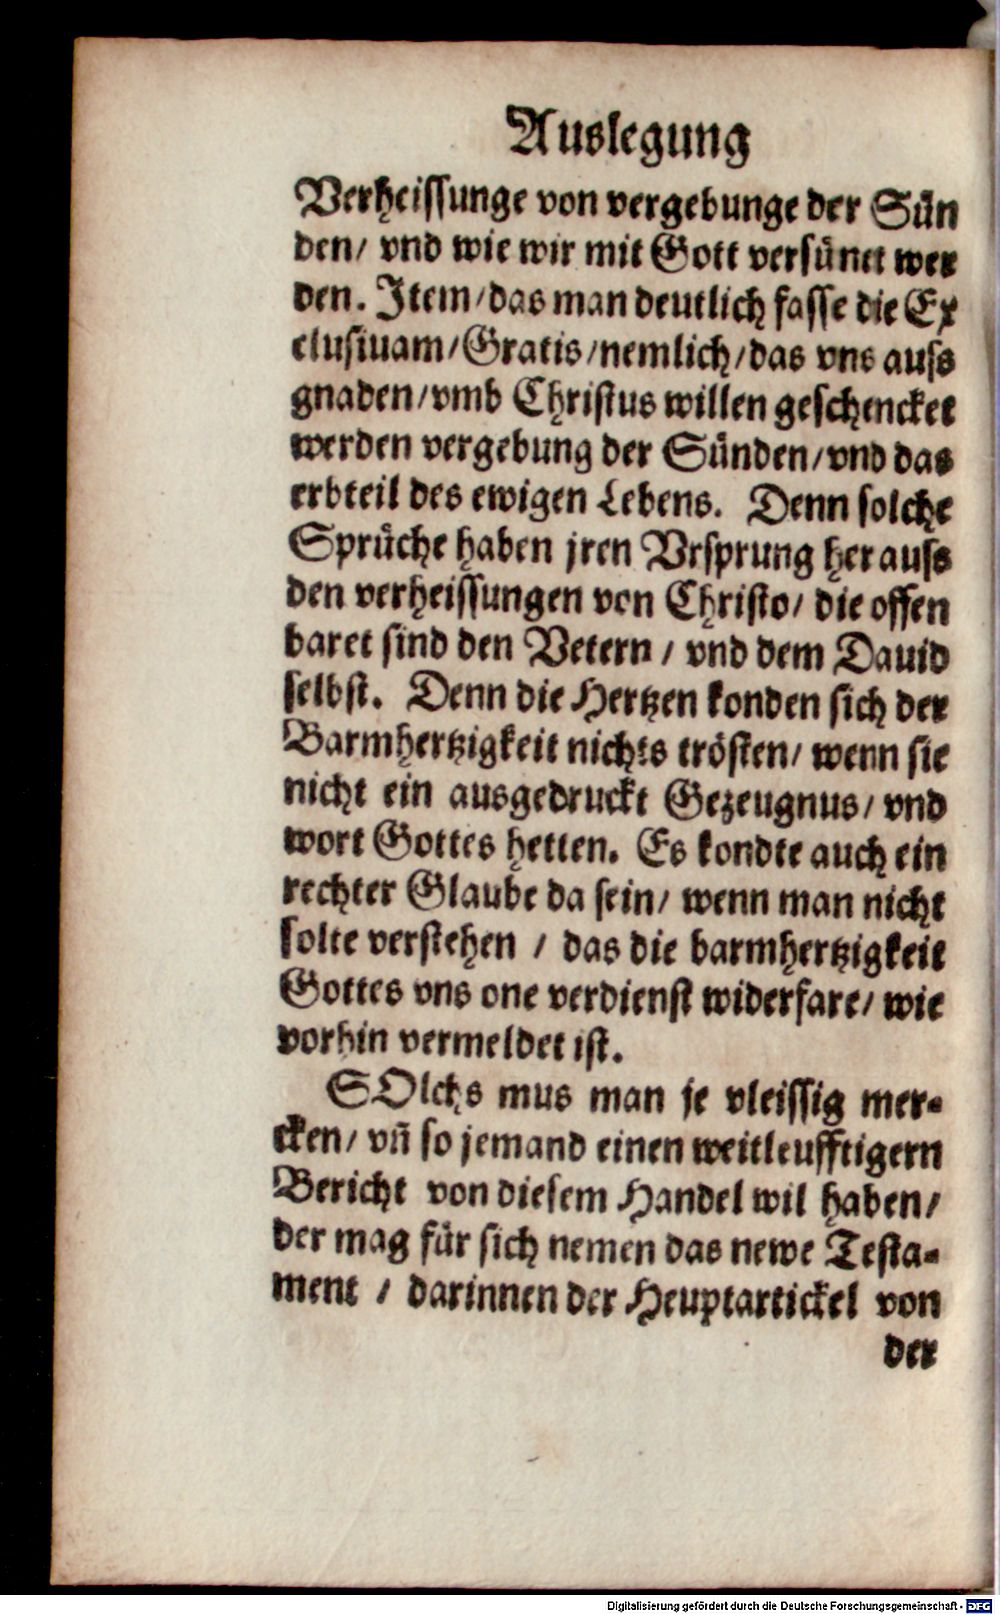 Auslegung
Verheissunge von vergebunge der Sün
den/ vnd wie wir mit Gott versünet wer
den. Item/das man deutlich fasse die Ex
clusiuam/Gratis/nemlich/das vns auss
gnaden/vmb Christus willen geschencket
werden vergebung der Sünden/vnd das
erbteil des ewigen Lebens. Denn solche
Sprüche haben jren Vrsprung her auss
den verheissungen von Christo/ die offen
baret sind den Vetern / vnd dem Dauid
selbst. Denn die Hertzen konden sich der
Barmhertzigkeit nichts trösten/ wenn sie
nicht ein ausgedruckt Gezeugnus/ vnd
wort Gottes hetten. Es kondte auch ein
rechter Glaube da sein/ wenn man nicht
solte verstehen / das die barmhertzigkeit
Gottes vns one verdienst widerfare/ wie
vorhin vermeldet ist.
SOlchs mus man je vleissig mer-
cken/ vn̄ so jemand einen weitleufftigern
Bericht von diesem Handel wil haben/
der mag für sich nemen das newe Testa-
ment / darinnen der Heuptartickel von
der
Digitalisierung gefördert durch die Deutsche Forschungsgemeinschaft - DFG